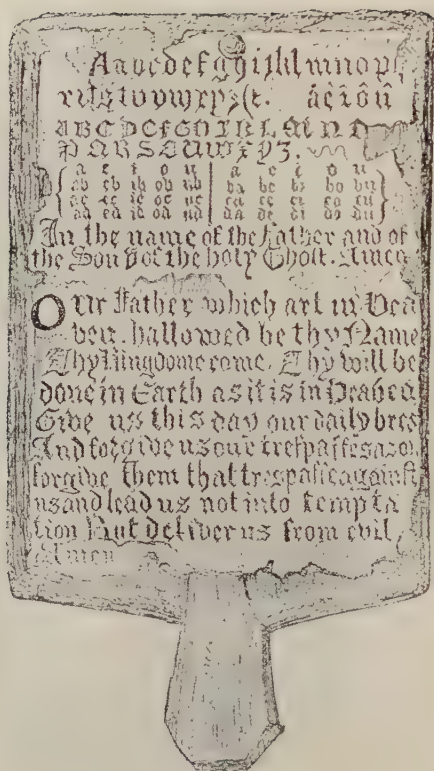 Aabcdefghijklmnop
rſstuvwxyz&. áéíôû
ABCDEFGHIKLMNO
PQRSTUWXYZ.
a e i o u | a e i o u
ab eb ib ob ub | ba be bi bo bu
ac ec ic oc uc | ca ce ci co cu
ad ed id od ud | da de di do du
In the name of the Father and of
the Son & of the holy Ghoſt. Amen
Our Father which art in Hea
ven. hallowed be thy Name
Thy Kingdome come. Thy will be
done in Earth as it is in Heaben
Give us this day our daily bred
And forgive us our treſpaſſes as
forgive them that treſpaſſe againſt
us and lead us not into tempta
tion But deliver us from evil
Amen